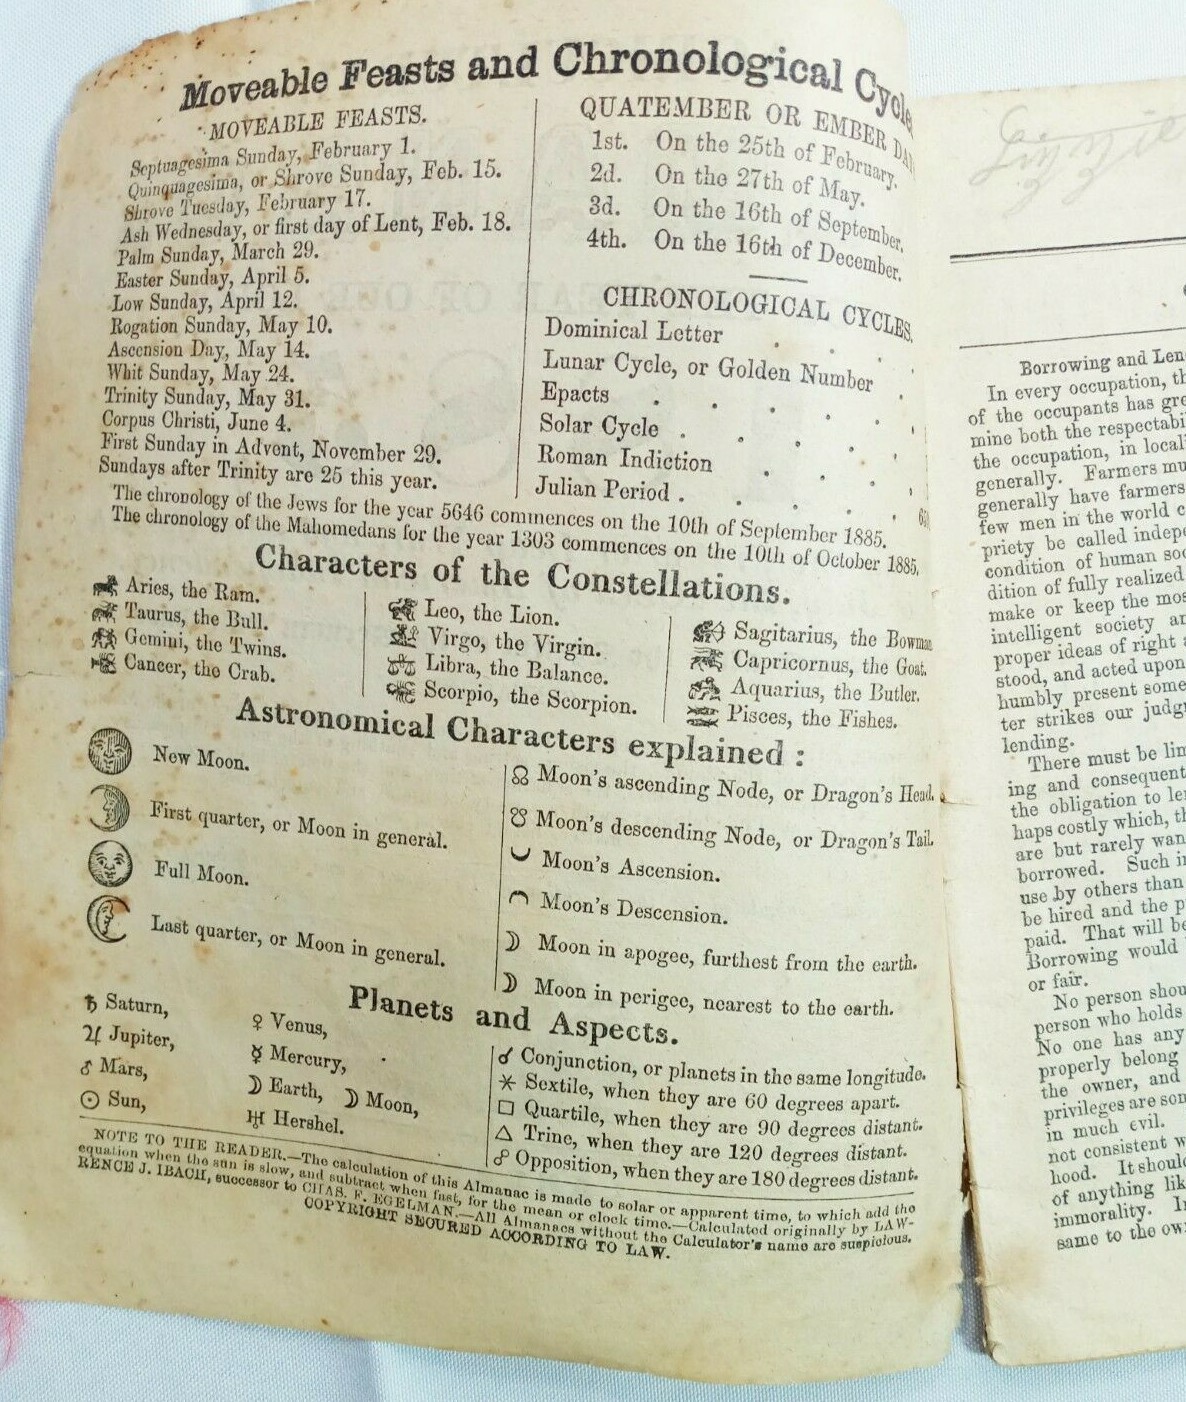 Moveable Feasts and Chronological Cycle
MOVEABLE FEASTS.
Septuagesima Sunday, February 1.
Quinquagesima, or Shrove Sunday, Feb. 15.
Shrove Tuesday, February 17.
Ash Wednesday, or first day of Lent, Feb. 18.
Palm Sunday, March 29.
Easter Sunday, April 5.
Low Sunday, April 12.
Rogation Sunday, May 10.
Ascension Day, May 14.
Whit Sunday, May 24.
Trinity Sunday, May 31.
Corpus Christi, June 4.
First Sunday in Advent, November 29.
Sundays after Trinity are 25 this year.
QUATEMBER OR EMBER DA
1st. On the 25th of February.
2d. On the 27th of May.
3d. On the 16th of September.
4th. On the 16th of December.
CHRONOLOGICAL CYCLES.
Dominical Letter
Lunar Cycle, or Golden Number
Epacts
Solar Cycle
Roman Indiction
Julian Period
The chronology of the Jews for the year 5646 commences on the 10th of September 1885.
The chronology of the Mahomedans for the year 1303 commences on the 10th of October 1885.
Characters of the Constellations.
Aries, the Ram.
Taurus, the Bull.
Gemini, the Twins.
Cancer, the Crab.
Leo, the Lion.
Virgo, the Virgin.
Libra, the Balance.
Scorpio, the Scorpion.
Sagitarius, the Bowman
Capricornus, the Goat.
Aquarius, the Butler.
Pisces, the Fishes.
Astronomical Characters explained :
New Moon.
First quarter, or Moon in general.
Full Moon.
Last quarter, or Moon in general.
☊ Moon's ascending Node, or Dragon's Head.
☋ Moon's descending Node, or Dragon's Tail.
Moon's Ascension.
Moon's Descension.
☽ Moon in apogee, furthest from the earth.
☽ Moon in perigee, nearest to the earth.
Planets and Aspects.
♄ Saturn,
♃ Jupiter,
♂ Mars,
☉ Sun,
♀ Venus,
☿ Mercury,
☽ Earth, ☽ Moon,
♅ Hershel.
☌ Conjunction, or planets in the same longitude.
⚹ Sextile, when they are 60 degrees apart.
□ Quartile, when they are 90 degrees distant.
△ Trine, when they are 120 degrees distant.
☍ Opposition, when they are 180 degrees distant.
NOTE TO THE READER.—The calculation of this Almanac is made to solar or apparent time, to which add the
equation when the sun is slow, and subtract when fast, for the mean or clock time.—Calculated originally by LAW-
RENCE J. IBACH, successor to CHAS. F. EGELMAN.—All Almanacs without the Calculator's name are suspicious.
COPYRIGHT SECURED ACCORDING TO LAW.
Borrowing and Len
In every occupation, th
of the occupants has gre
mine both the respectabi
the occupation, in locali
generally. Farmers mu
generally have farmers
few men in the world c
priety be called indepe
condition of human soc
dition of fully realized
make or keep the mos
intelligent society an
proper ideas of right a
stood, and acted upon
humbly present some
ter strikes our judg
lending.
There must be lim
ing and consequent
the obligation to le
haps costly which, th
are but rarely wan
borrowed. Such i
use by others than
be hired and the p
paid. That will be
Borrowing would
or fair.
No person shou
person who holds
No one has any
properly belong
the owner, and
privileges are son
in much evil.
not consistent w
hood. It shoul
of anything lik
immorality. I
same to the ow